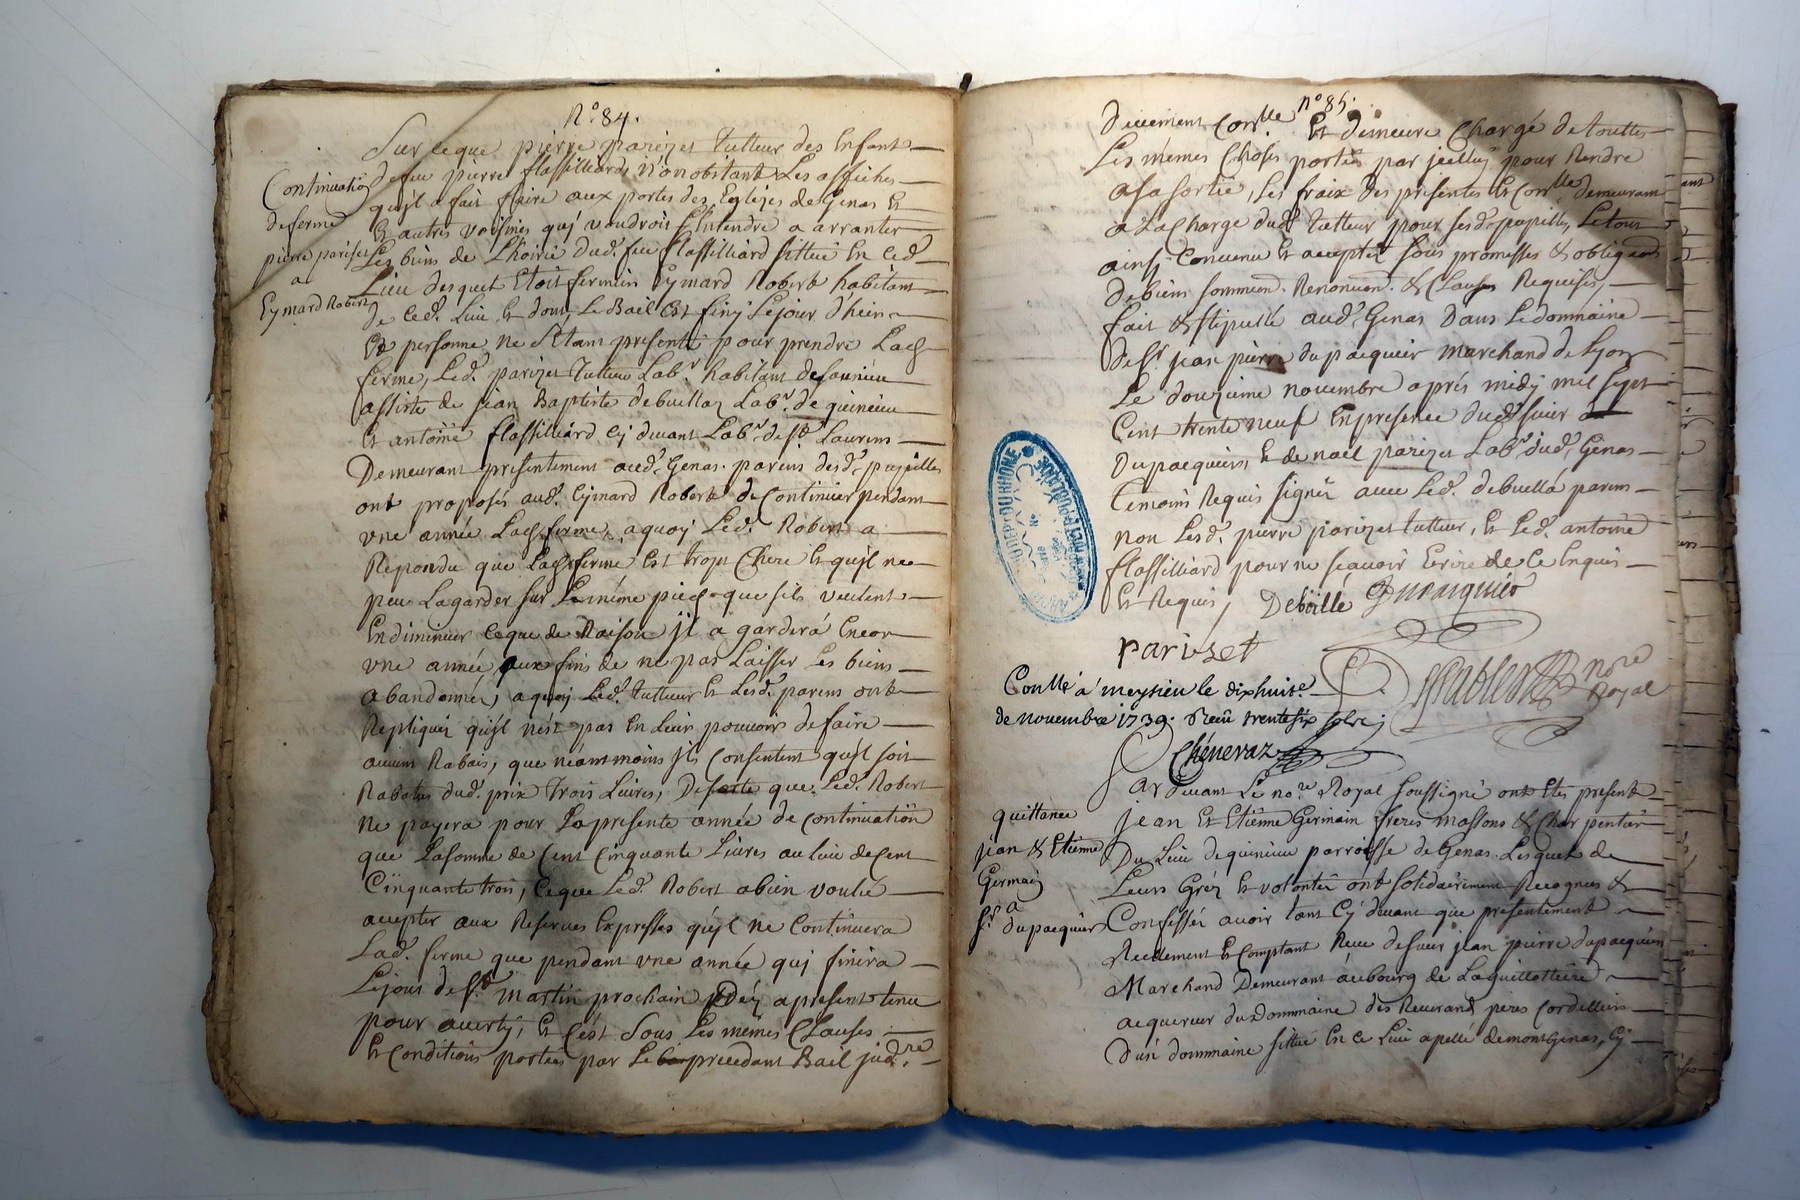 N.° 84.
Sur ce que pierre parizet tutteur des Enfant
de feu pierre flassilliard, Nonobstant Les affiches
qu'jl a fait faire aux portes des Eglizes de Genas Et
Et autres voisines quj voudroit S'Entendre a arranter
Les biens de L'hoirie dud. feu flassilliard sittué En Led.
Lieu desquet Etoit fermier Eymard Robert habitant
de Led. Lieu Et dont Le Bail Est finj Le jour d'hier
Et personne ne s'étant presenté pour prendre Lad.
ferme, Led. parizet tutteur Lab.r habitant de
assisté de jean Baptiste debuellaz Lab.r de quincieu
Et antoine flassilliard cy devant Lab.r de st. Laurens
Demeurant presentement aud. Genas parens desd. pupilles
ont proposés aud. Eymard Robert de Continuer pendant
une année Lad. ferme, a quoy Led. Robert a
Repondu que Lad. ferme Est trop Chere Et qu'jl ne
peut La garder sur Le même pied que s'ils veulent
En diminuer ce que de Raison jl a gardera Encor
une année aux fins de ne pas Laisser Les biens
abandonnés, a quoy Led. tutteur Et Lesd. parens ont
Repliqués qu'jl n'est pas En Leur pouvoir de faire
aucun Rabais, que néantmoins jls Consentent qu'jl soit
Rabatus dud. prix trois Livres, De sorte que Led. Robert
Ne payera pour La presente année de Continuation
que La somme de Cent Cinquante Livres au lieu de Cent
Cinquante trois, Ce que Led. Robert a bien voulu
accepter aux Reserves Expresses qu'jl ne Continuera
Lad. ferme que pendant une année quj finira
Le jour de St. martin prochain Dez a present tenu
pour averty, Et C'est sous Les mêmes Clauses
Et Conditions portées par Le precedant Bail jud.re
Continuation
de ferme
pierre pariset
a
Eymard Robert
n.° 85.
Deuement Con.lle Et demeure Chargé de touttes
Les mêmes Choses portées par jcelluy pour Rendre
a sa sortie, Les fraix des presentes Et Con.lle demeurant
a La Charge dud. tutteur pour sesd. pupilles, Le tout
ainsj Convenu Et accepté sous promesses & obligaon
De biens soumission. Renonciaon. & Clauses Requises,
fait & stipullé aud. Genas Dans Le dommaine
De Sr. jean pierre dupacquier marchand de Lyon
Le douzieme novembre après midy mil sept
Cent trente neuf En presence dud. sieur
Dupacquier, Et de noël parizet Lab.r dud. Genas
temoins Requis signéz avec Led. debuellá parens
non Lesd. pierre parizet tutteur, Et Led. antoine
flassilliard pour ne sçavoir Ecrire de Ce Enquis
Et Requis, Deboille Dupacquier
parizet
Con.lle a meysieu le dixhuit.e
de novembre 1739. Receu trentesix sols
noire
Royal
Chéneraz
Par devant Le no.re Royal soussigné ont Etes present
jean Et Etienne Germain freres massons & Charpentier
Du Lieu de quincieu parroisse de Genas Lesquels de
Leurs Gréz Et volonté ont solidairement Recognus &
Confessér avoir tant Cy devant que presentement
Reellement Et Comptant Receu de sieur jean pierre dupacquier
Marchand Demeurant au bourg de La guillottiere
acquereur du Dommaine des Reverand peres Cordelliers
D'un dommaine sittué En ce Lieu apellé de mont Genas, Cy
quittance
jean & Etienne
Germain
a
Sr. dupacquier